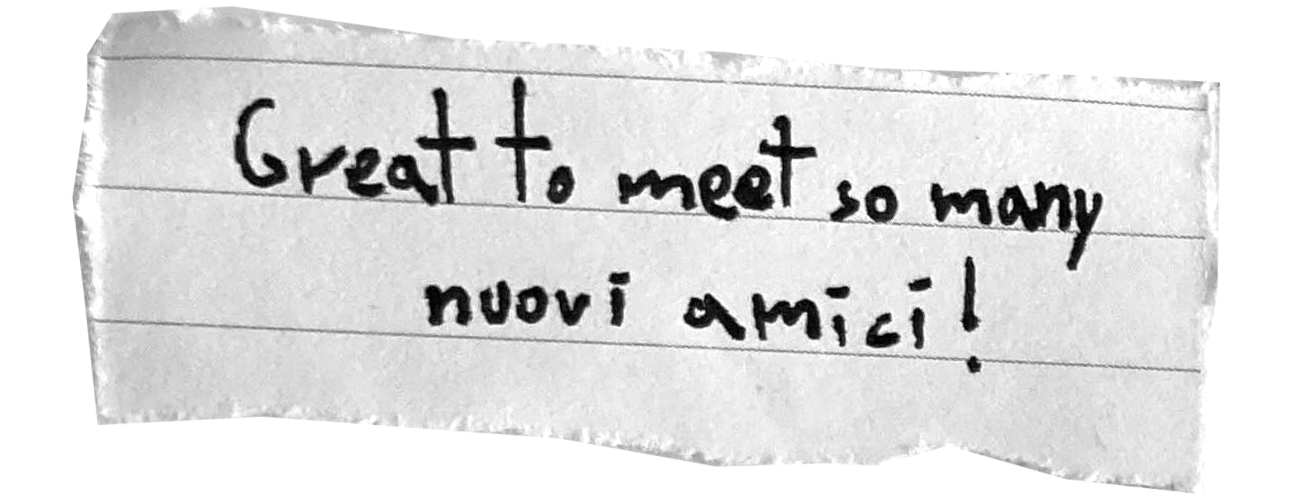 Great to meet so many
nuovi amici!